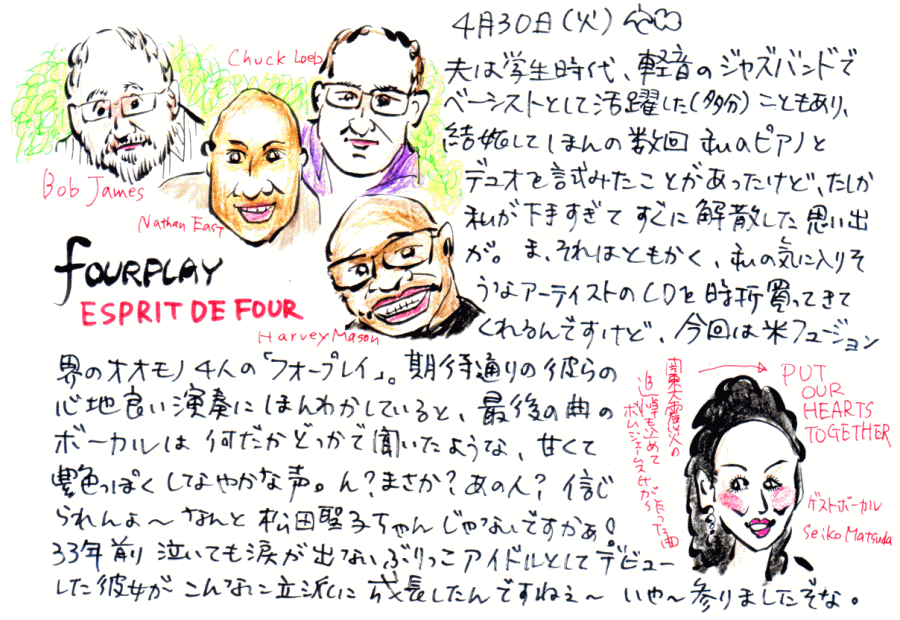 4月30日(火)
夫は学生時代、軽音のジャズバンドで
ベーシストとして活躍した(多分)こともあり、
結婚してほんの数回私のピアノと
デュオを試みたことがあったけど、たしか
私が下手すぎてすぐに解散した思い出
が。ま、それはともかく、私の気に入りそ
うなアーティストのCDを時折買ってきて
くれるんですけど、今回は米フュージョン
界のオオモノ4人の「フォープレイ」。期待通りの彼らの
心地良い演奏にほんわかしていると、最後の曲の
ボーカルは何だかどっかで聞いたような、甘くて
艶っぽくしなやかな声。ん?まさか?あの人?信じ
られんよ〜なんと松田聖子ちゃんじゃないですかぁ!
33年前泣いても涙が出ないぶりっこアイドルとしてデビュー
した彼女がこんなに立派に成長したんですねぇ〜いや〜参りましたぞな。
Chuck Loeb
Bob James
Nathan East
Harvey Mason
fOURPLAY
ESPRIT DE FOUR
PUT
OUR
HEARTS
TOGETHER
関東大震災の
追悼を込めて
ボブ・ジェームスさんが作った曲
ゲストボーカル
Seiko Matsuda